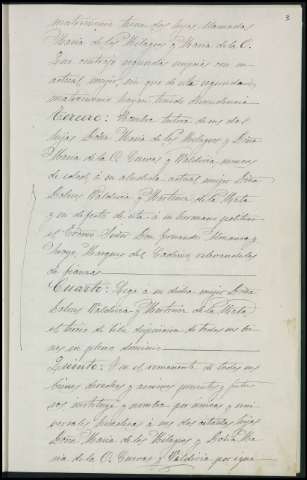 3
matrimonio tiene dos hijas llamadas
Maria de los Milagros y Maria de la O.
Que contrajo segundas nupcias con su
actual mujer, sin que de este segundo
matrimonio hayan tenido descendencia
Tercero: Nombra tutora de sus dos
hijas Doña Maria de los Milagros y Doña
Maria de la O. Cuevas y Valdivia menores
de edad, á su aludida actual mujer Doña
Dolores Valdivia y Martinez de la Mata
y en defecto de esta á su hermano político
el Excmo Señor Don Fernando
Marques del relevandoles
de fianzas
Cuarto: Lega á su dicha mujer Doña
Dolores Valdivia y Martinez de la Mata
el tercio de libre disposicion de todos sus bie-
nes en pleno dominio
Quinto: Y en el remanente de todos sus
bienes derechos y acciones presentes y futu-
ros instituye y nombra por únicas y uni-
versales herederas á sus dos citadas hijas
Doña Maria de los Milagros y Doña Ma-
ria de la O. Cuevas y Valdivia por igua-